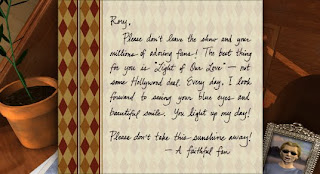 Rory,
Please don't leave the show and your
millions of adoring fans! The best thing
for you is "Light of Our Love" – not
some Hollywood deal. Every day, I look
forward to seeing your blue eyes and
beautiful smile. You light up my day!
Please don't take this sunshine away!
– A faithful fan